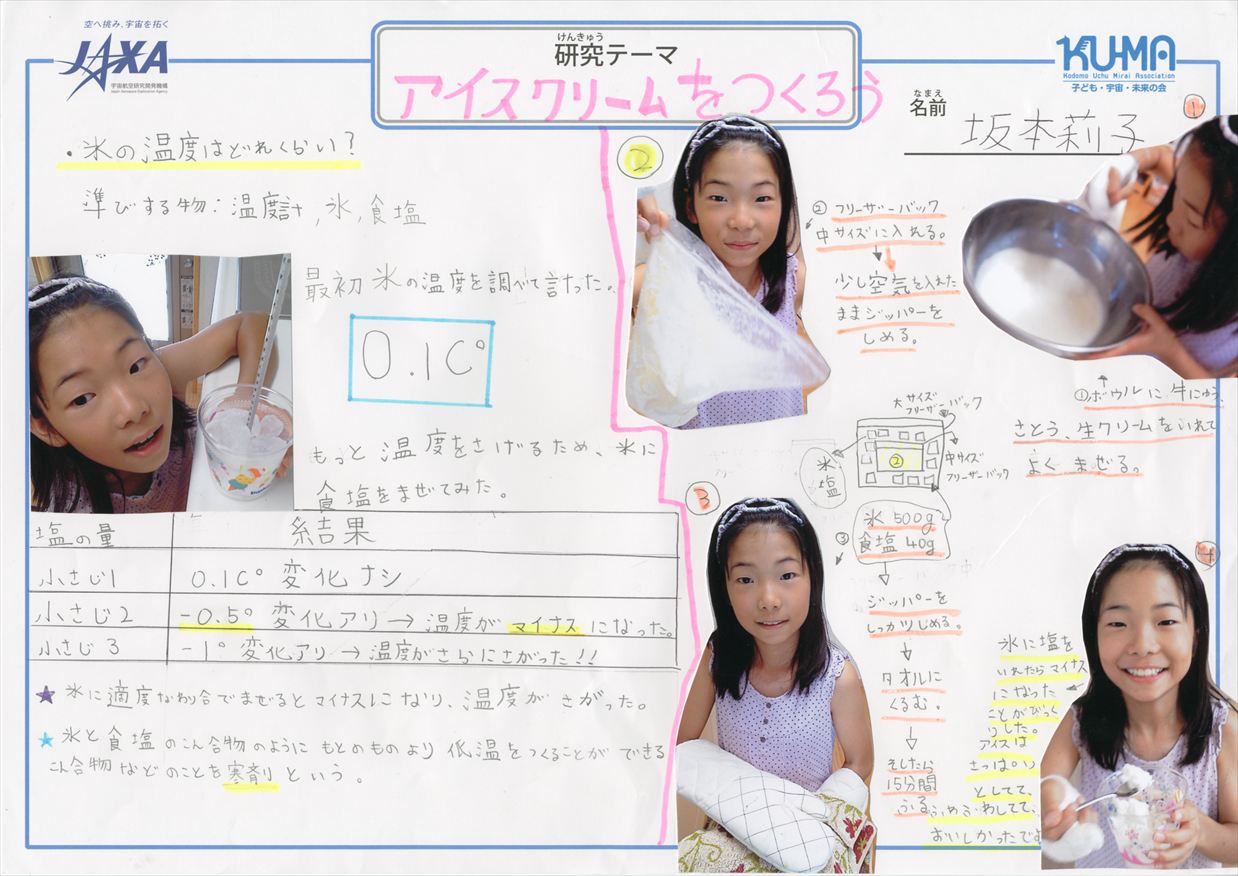 空へ挑み、宇宙を拓く
JAXA
宇宙航空研究開発機構
Japan Aerospace Exploration Agency
けんきゅう
研究テーマ
アイスクリームをつくろう
KU-MA
Kodomo Uchu Mirai Association
子ども・宇宙・未来の会
なまえ
名前
坂本莉子
・氷の温度はどれくらい?
準びする物:温度計,氷,食塩
最初氷の温度を調べて計った。
0.1C°
もっと温度をさげるため、氷に
食塩をまぜてみた。
塩の量 結果
小さじ1 0.1C° 変化ナシ
小さじ2 -0.5° 変化アリ→温度がマイナスになった。
小さじ3 -1° 変化アリ→温度がさらにさがった!!
★氷に適度なわり合でまぜるとマイナスになり、温度がさがった。
★氷と食塩のこん合物のようにもとのものより低温をつくることができる
こん合物などのことを寒剤という。
1
↑
①ボウルに牛にゅう、
さとう、生クリームをいれて
よくまぜる。
2
②フリーザーバック
中サイズに入れる。
↓
少し空気を入れた
ままジッパーを
しめる。
大サイズ
フリーザーバック
②
中サイズ
フリーザーバック
氷
塩
3
③
氷500g
食塩40g
↓
ジッパーを
しっかりしめる。
↓
タオルに
くるむ。
↓
そしたら
15分間
ふる
4
氷に塩を
いれたらマイナス
になった
ことがびっく
りした。
アイスは
さっぱり
としてて、
おいしかったで